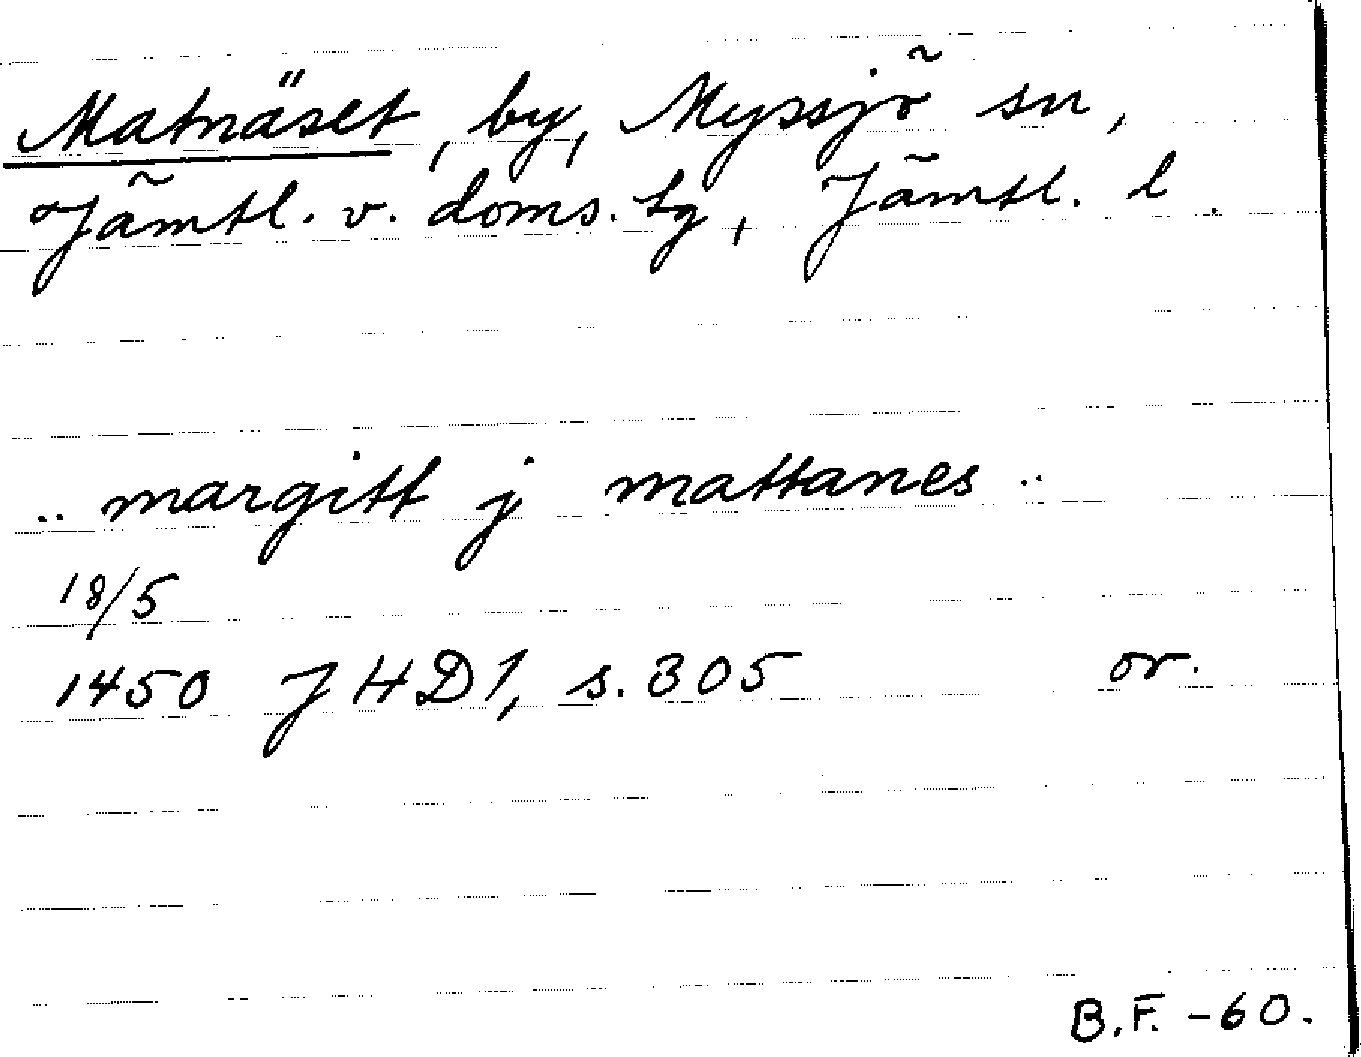 Matnäset, by, Myssjö sn,
Jämtl. v. doms. tg, Jämtl. l.
.. margitt j mattanes ..
18/5
1450 JHD1, s. 305 or.
B.F. -60.